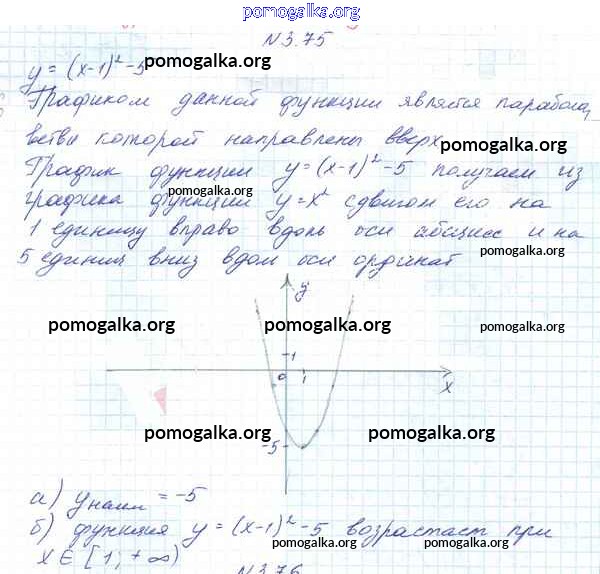 pomogalka.org
N 3.75
y = (x-1)² - 5 pomogalka.org pomogalka.org
Графиком данной функции является парабола,
ветви которой направлены вверх. pomogalka.org
График функции y=(x-1)²-5 получаем из
pomogalka.org
графика функции y=x² сдвигом его на
1 единицу вправо вдоль оси абсцисс и на
pomogalka.org
5 единиц вниз вдоль оси ординат
y
pomogalka.org pomogalka.org pomogalka.org
1
0 1 x
pomogalka.org pomogalka.org
-5
а) yнаим = -5
pomogalka.org
б) функция y = (x-1)² - 5 возрастает при
x ∈ [1; +∞) pomogalka.org pomogalka.org
N 3.76